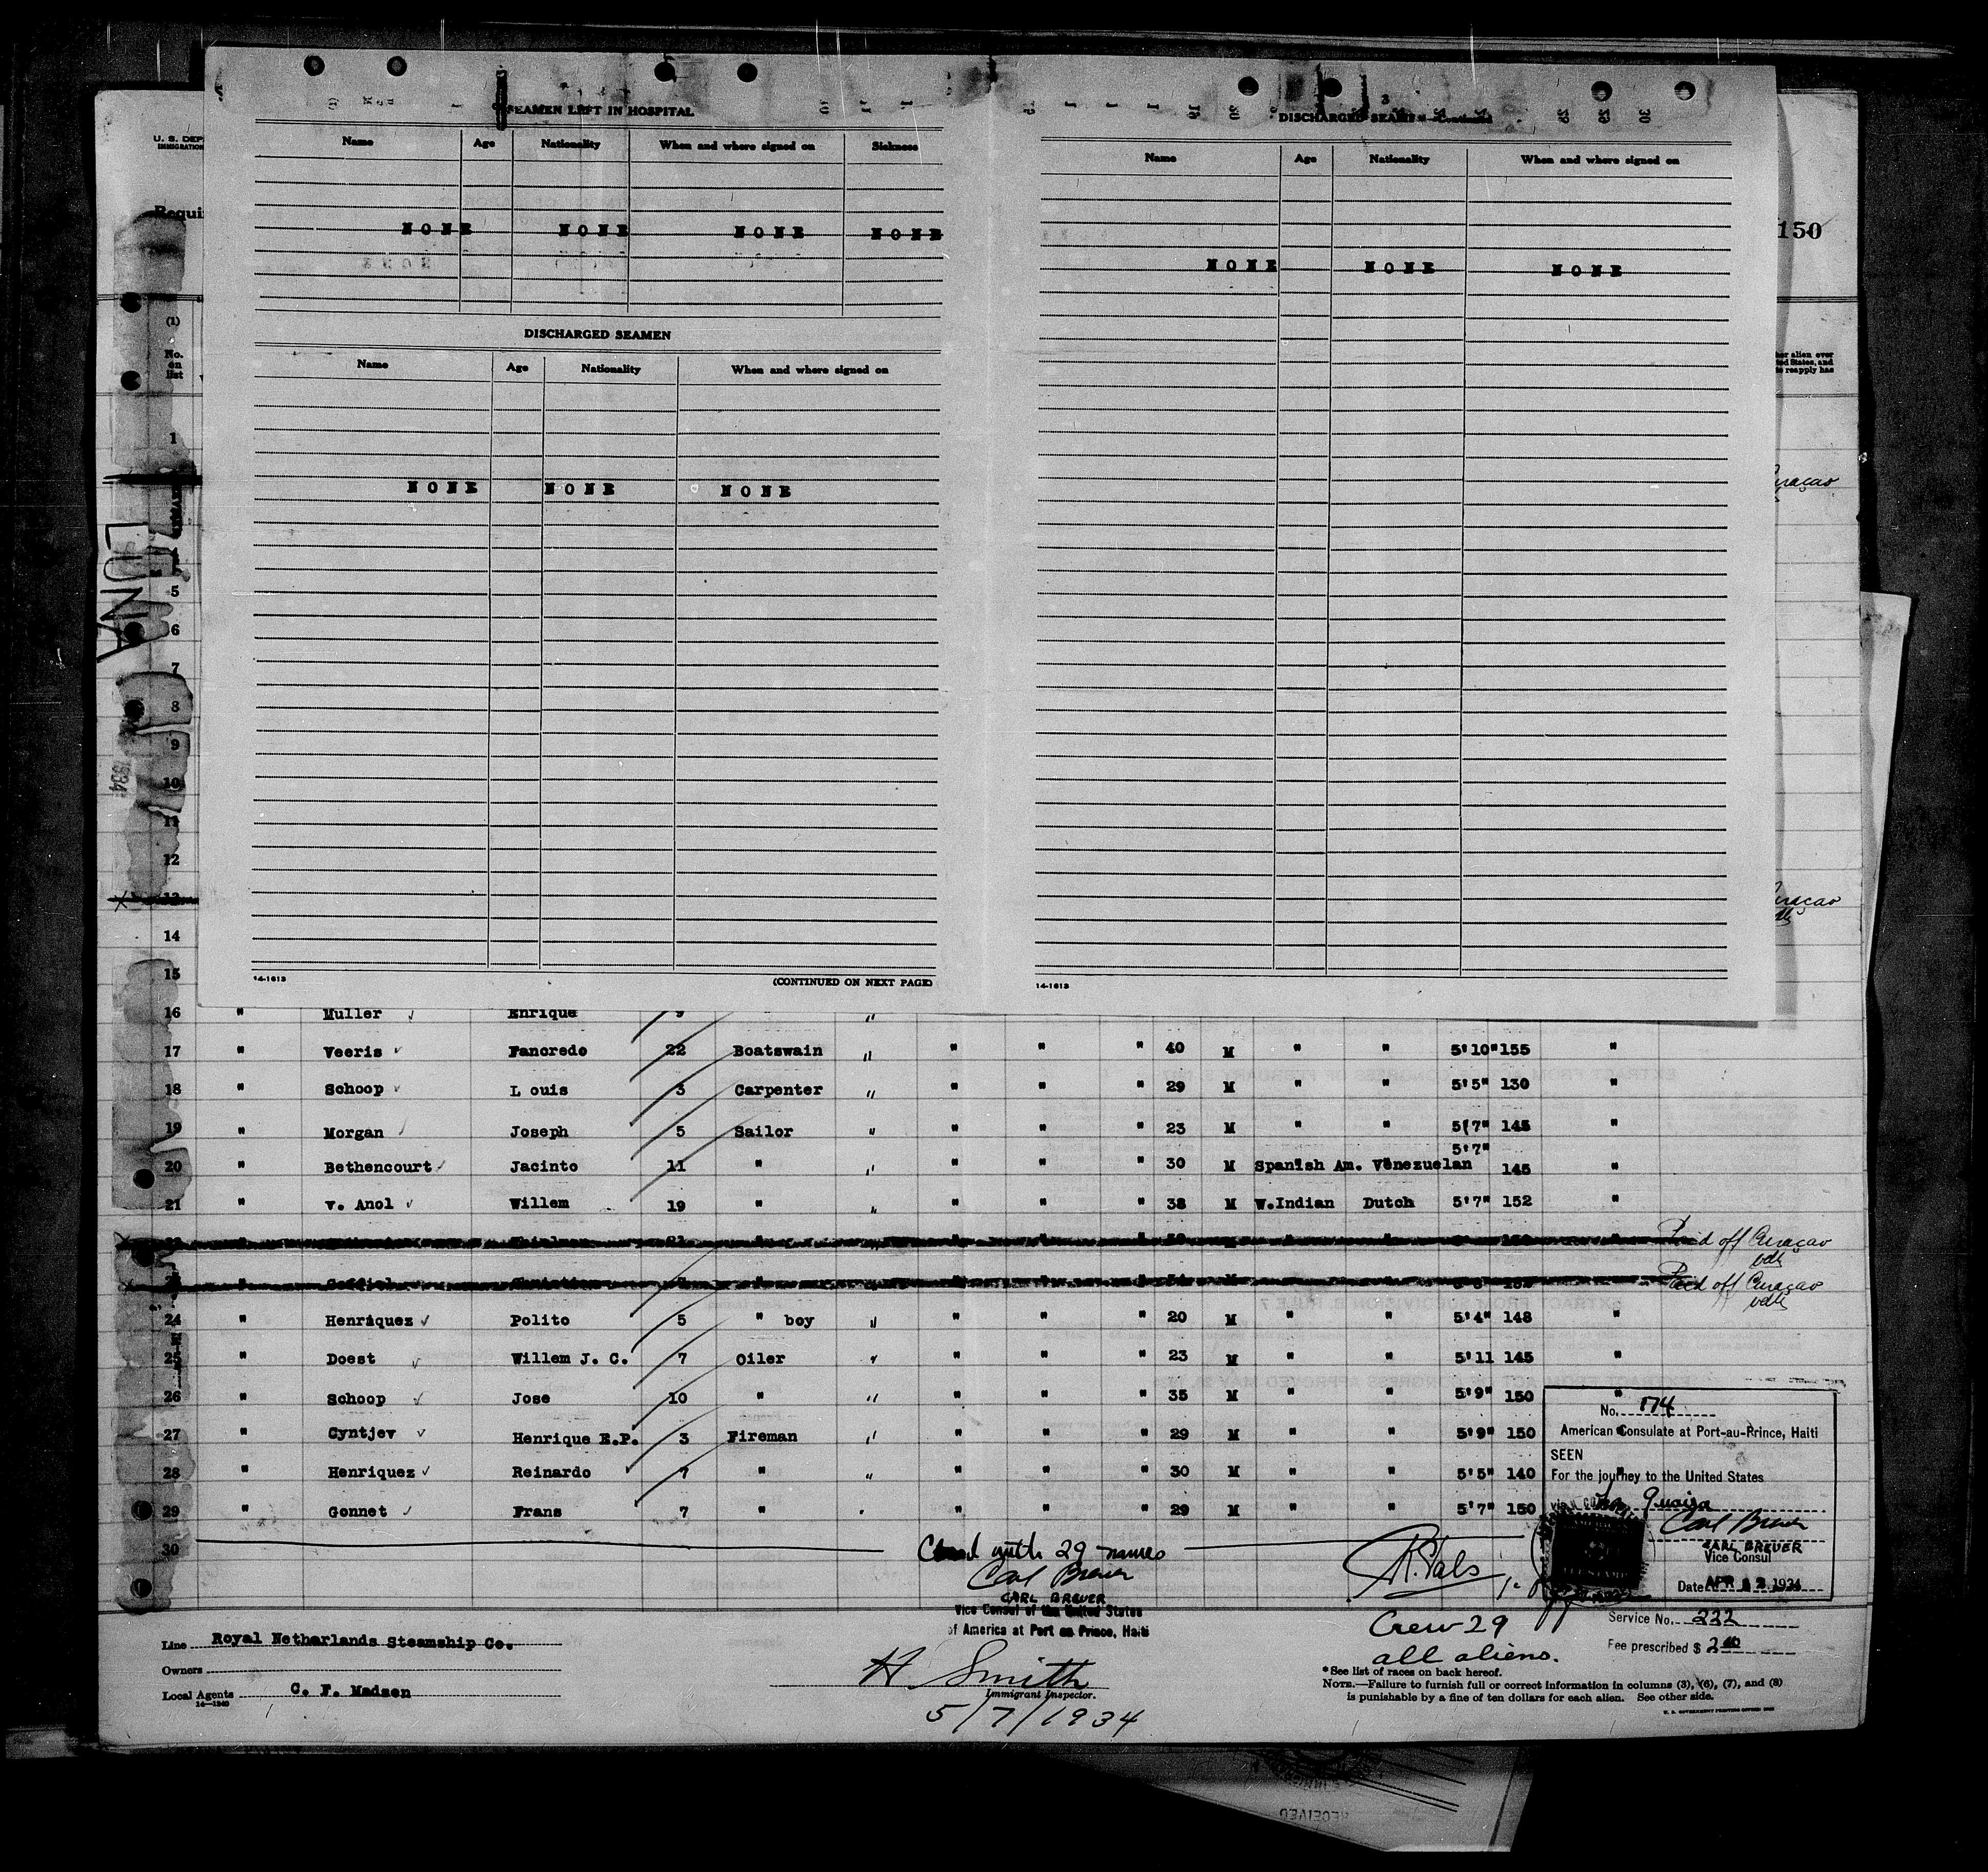 SEAMEN LEFT IN HOSPITAL
Name Age Nationality When and where signed on Sickness
NONE NONE NONE NONE
DISCHARGED SEAMEN
Name Age Nationality When and where signed on
NONE NONE NONE
14-1613 (CONTINUED ON NEXT PAGE)
3
DISCHARGED SEAMEN—Continued
Name Age Nationality When and where signed on
NONE NONE NONE
14-1613
U. S. DEP
IMMIGRATION
Requi
150
(1)
No. on list
her alien ever
ted States, and
reapply has
LUNA
1934
1
5
6
7
8
9
10
11
12
13
14
15
16 " Muller Enrique 9 "
17 " Veeris Fancredo 22 Boatswain " " " " 40 M " " 5'10" 155 "
18 " Schoop L ouis 3 Carpenter " " " " 29 M " " 5'5" 130 "
19 " Morgan Joseph 5 Sailor " " " " 23 M " " 5'7" 145 "
20 " Bethencourt Jacinto 11 " " " " " 30 M Spanish Am. Venezuelan 5'7" 145 "
21 " v. Anol Willem 19 " " " " " 38 M W.Indian Dutch 5'7" 152 "
Paid off Curaçao
Paid off Curaçao
24 " Henriquez Polito 5 " boy " " " " 20 M " " 5'4" 148 "
25 " Doest Willem J. C. 7 Oiler " " " " 23 M " " 5'11 145 "
26 " Schoop Jose 10 " " " " " 35 M " " 5'9" 150 "
27 " Cyntjev Henrique E.P. 3 Fireman " " " " 29 M " " 5'9" 150 "
28 " Henriquez Reinardo 7 " " " " " 30 M " " 5'5" 140 "
29 " Gonnet Frans 7 " " " " " 29 M " " 5'7" 150
30
No. 174
American Consulate at Port-au-Prince, Haiti
SEEN
For the journey to the United States
Carl Breuer
CARL BREUER
Vice Consul
Date APR 1934
Service No. 222
Fee prescribed $ 2
with 29 names
Carl Breuer
CARL BREUER
Vice Consul of the United States
of America at Port au Prince, Haiti
Crew 29
all aliens.
Line Royal Netherlands Steamship Co.
Owners
Local Agents C. F. Madsen
14—1240
H Smith
Immigrant Inspector.
5/7/1934
*See list of races on back hereof.
NOTE.—Failure to furnish full or correct information in columns (3), (6), (7), and (8)
is punishable by a fine of ten dollars for each alien. See other side.
RECEIVED